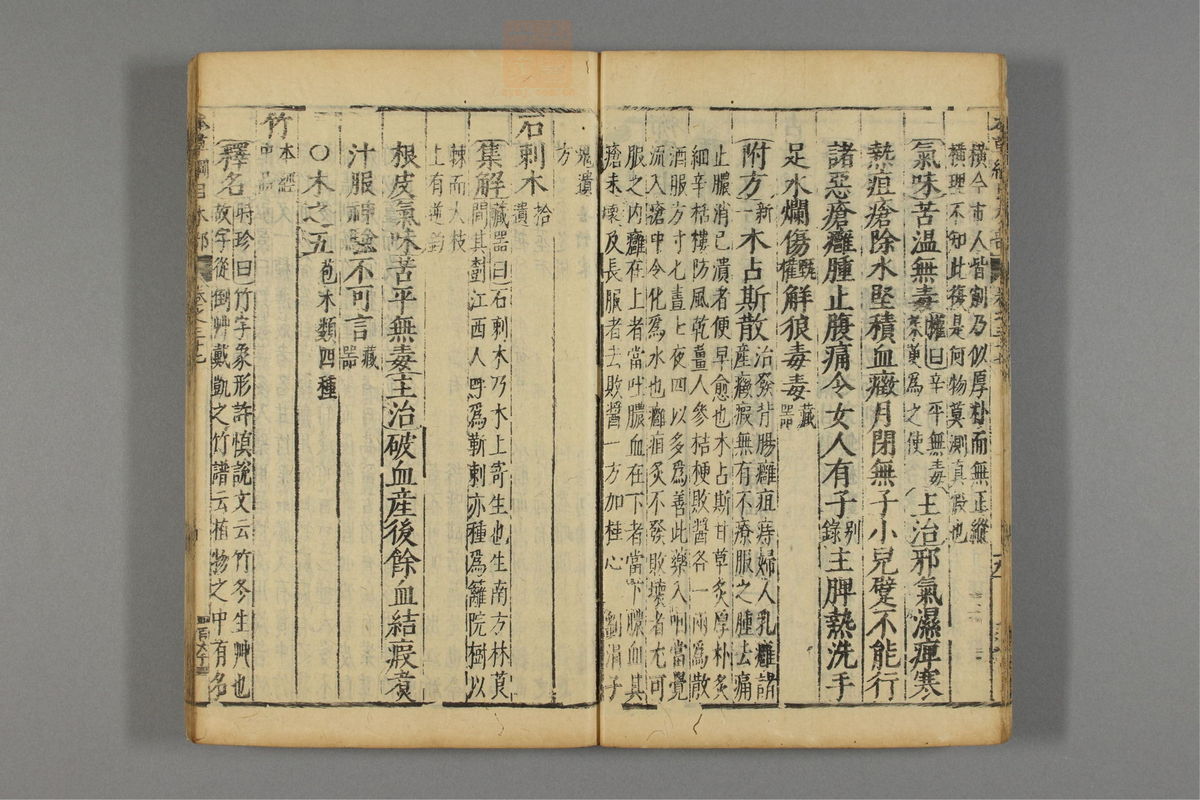 橫今市人皆削乃似厚朴而無正縱
橫理不知此復是何物莫測真假也
氣味苦溫無毒
權曰辛平無毒
茱萸為之使
主治邪氣濕痺寒
熱疽瘡除水堅積血癥月閉無子小兒躄不能行
諸惡瘡癰腫止腹痛令女人有子
別
錄
主脾熱洗手
足水爛傷
甄
權
解狼毒毒
藏
器
附方
新
一
木占斯散
治發背腸癰疽痔婦人乳癰諸
產癥瘕無有不療服之腫去痛
止膿消已潰者便早愈也木占斯甘草炙厚朴炙
細辛栝樓防風乾薑人參桔梗敗醬各一兩為散
酒服方寸匕晝七夜四以多為善此藥入咽當覺
流入瘡中令化為水也癰疽炙不發敗壞者尤可
服之內癰在上者當吐膿血在下者當下膿血其
瘡未壞及長服者去敗醬一方加桂心
劉涓子
鬼遺
方
石刺木
拾
遺
集解
藏器曰石刺木乃木上寄生也生南方林莨
間其樹江西人呼為靳刺亦種為籬院樹似
棘而大枝
上有逆鉤
根皮氣味苦平無毒主治破血産後餘血結瘕煑
汁服神驗不可言
藏
器
○木之五
苞木類四種
竹
本經
中品
釋名
時珍曰竹字象形許慎說文云竹冬生艸也
故字從倒艸戴凱之竹譜云植物之中有名